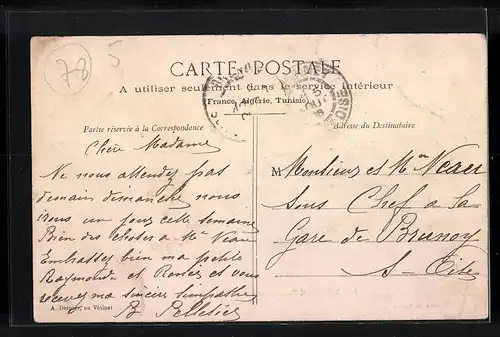 78
5
CARTE POSTALE
A utiliser seulement dans le service intérieur
(France, Algérie, Tunisie)
Partie réservée à la Correspondance
Adresse du Destinataire
Chère Madame
Ne nous attendez pas
demain dimanche nous
irons un jour cette semaine
Bien des choses a Mr Neau
Embrassez bien ma petite
Raymonde et Renée et vous
recevez ma sincère simpathie
B Pelletier
A. Drugier, au Vésinet
M onsieur et Mme Neau
Sous Chef a la
Gare de Brunoy
S-Oise